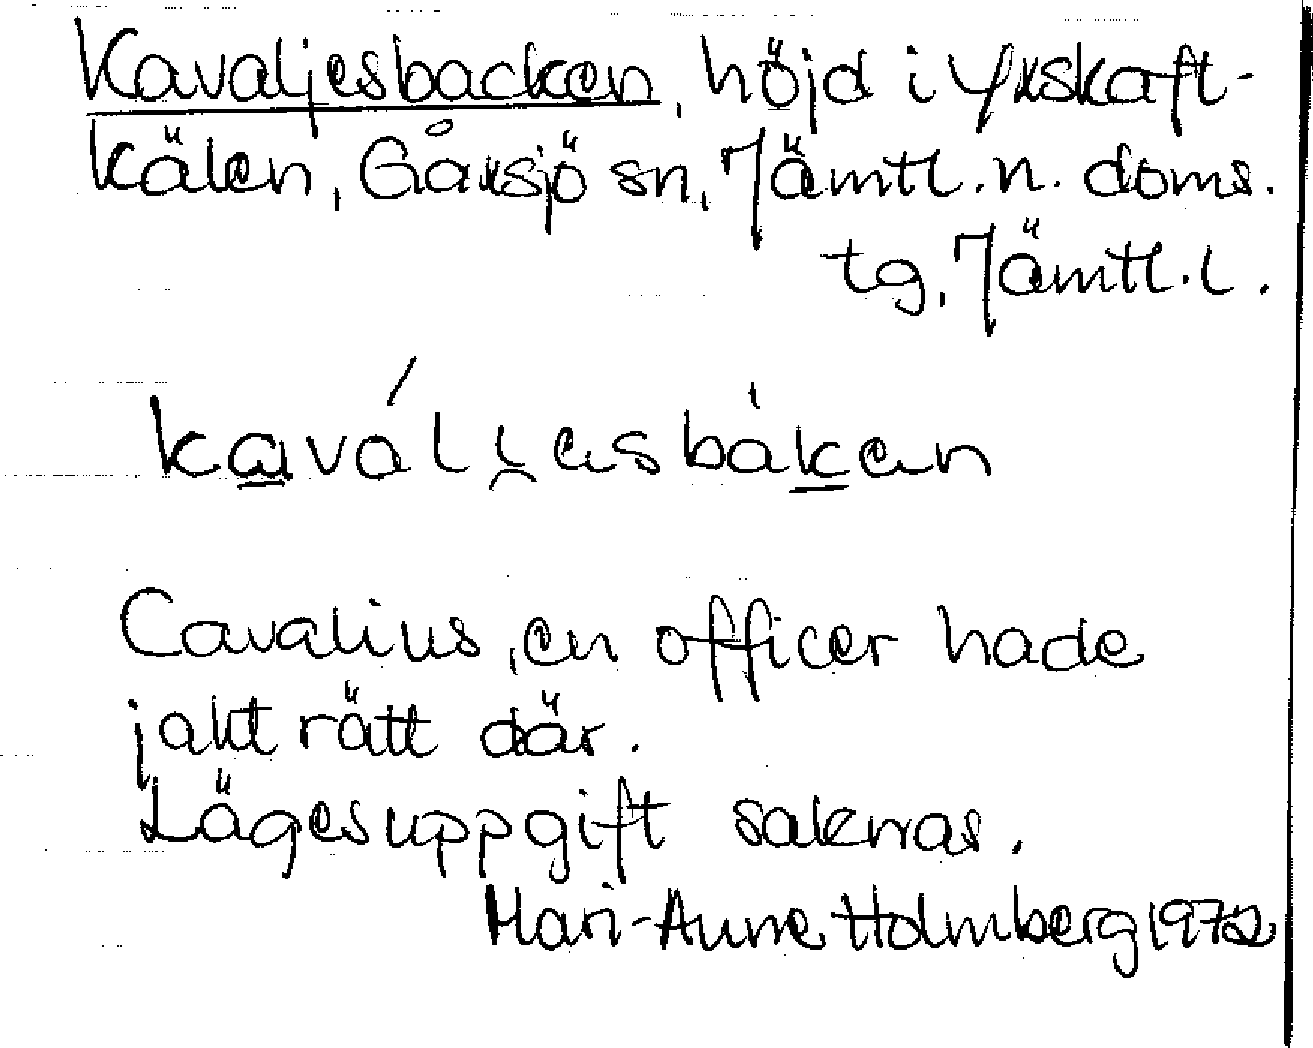 Kavaljesbacken, höjd i Yxskaft-
kälen, Gåxsjö sn, Jämtl. n. doms.
tg, Jämtl. l.
kavál i̯esbàken
Cavalius, en officer hade
jakträtt där.
Lägesuppgift saknas.
Mari-Anne Holmberg 1972